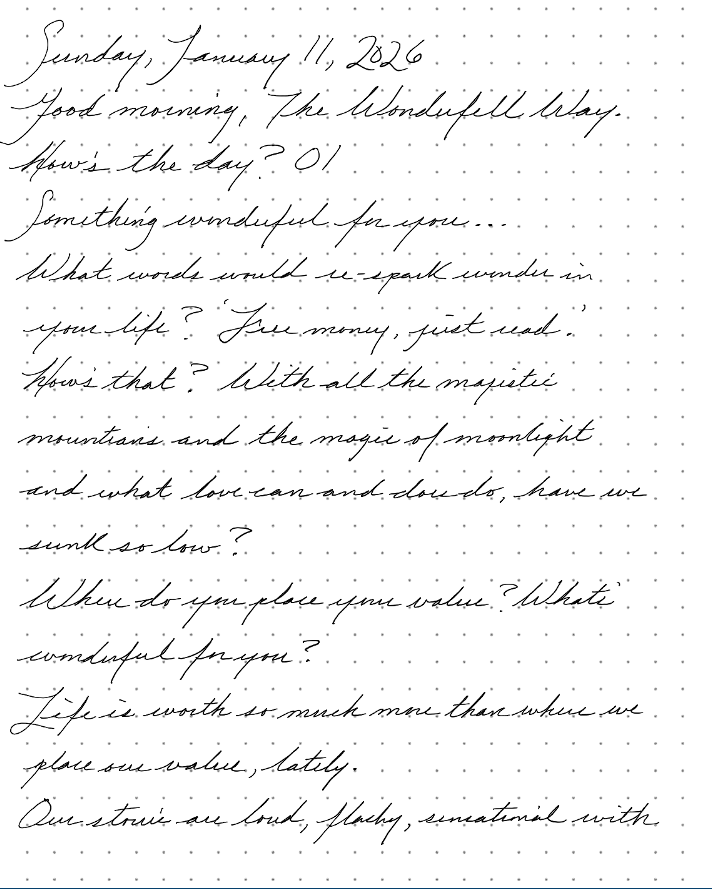 Sunday, January 11, 2026
Good morning, The Wonderfell Way.
How's the day? 01
Something wonderful for you...
What words would re-spark wonder in
your life? 'Free money, just read.'
How's that? With all the majestic
mountians and the magic of moonlight
and what love can and does do, have we
sunk so low?
Where do you place your value? What's
wonderful for you?
Life is worth so much more than where we
place our value, lately.
Our stories are loud, flashy, sensational with